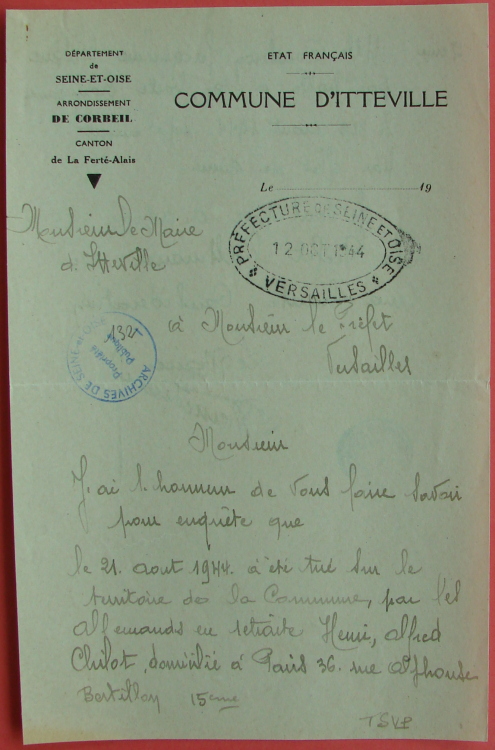 DÉPARTEMENT
de
SEINE-ET-OISE
ARRONDISSEMENT
DE CORBEIL
CANTON
de La Ferté-Alais
ETAT FRANÇAIS
COMMUNE D'ITTEVILLE
Le 19
PRÉFECTURE DE SEINE ET OISE
12 OCT 1944
VERSAILLES
Monsieur le Maire
d'Itteville
ARCHIVES DE SEINE-ET-OISE
Propriété
Publique
132
à Monsieur le Préfet
Versailles
Monsieur
J'ai l'honneur de vous faire savoir
pour enquête que
le 21. aout 1944. à été tué sur le
territoire de la Commune, par les
allemands en retraite Henri, alfred
Chilot, domicilié à Paris 36. rue alphonse
Bertillon 15eme
TSVP